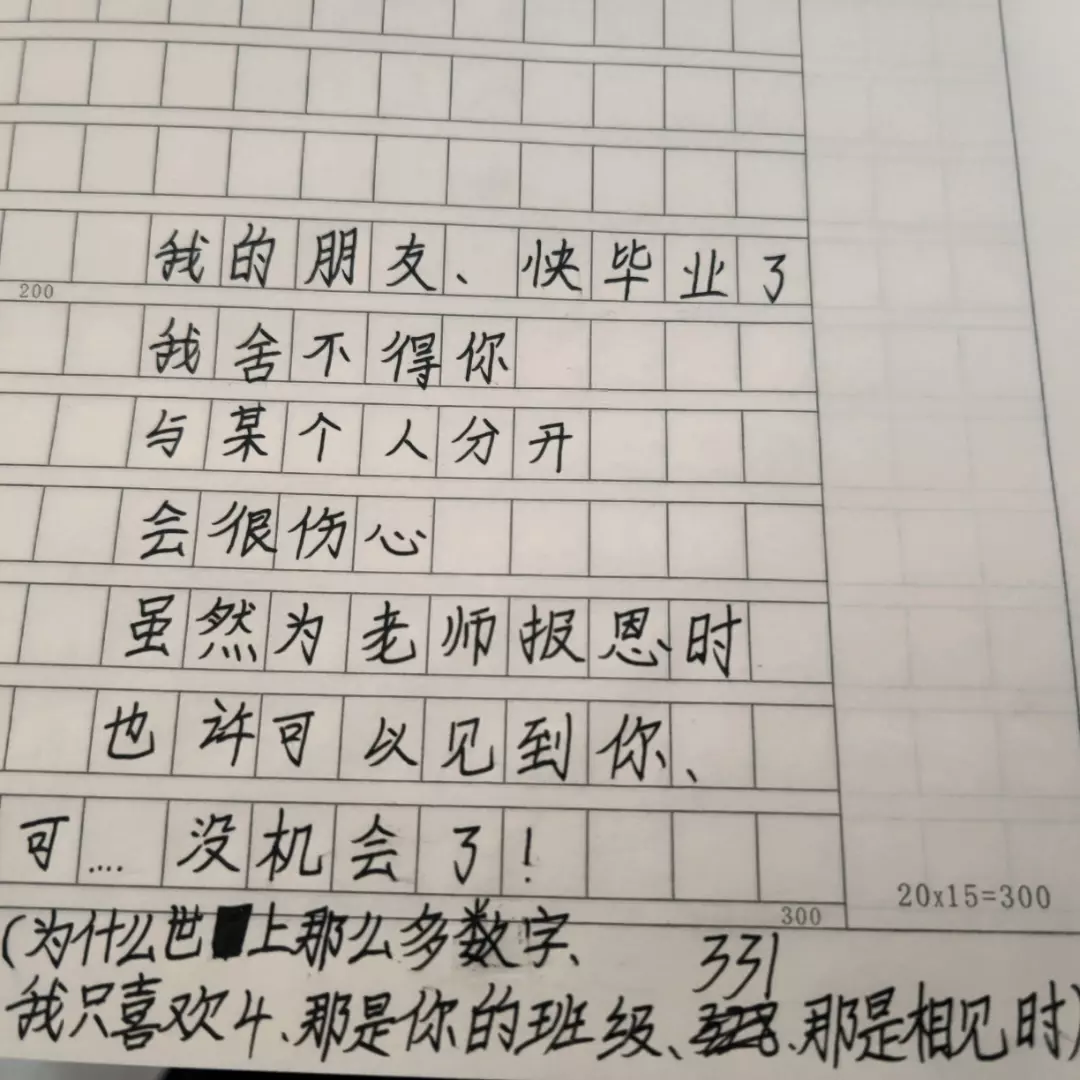 我的朋友、快毕业了
200
我舍不得你
与某个人分开
会很伤心
虽然为老师报恩时
也许可以见到你、
可....没机会了!
20x15=300
300
(为什么世上那么多数字、
331
我只喜欢4、那是你的班级、、那是相见时)